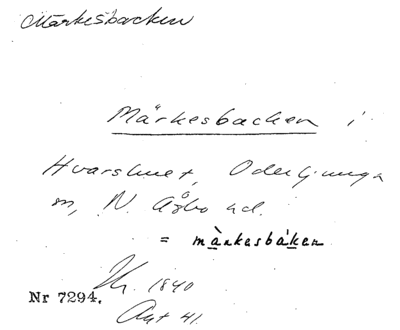 Märkesbacken
Märkesbacken i
Hvarshult, Oderljunga
sn, N. Åsbo hd.
= màrkesbáken
Nr 7294.
1840
41.